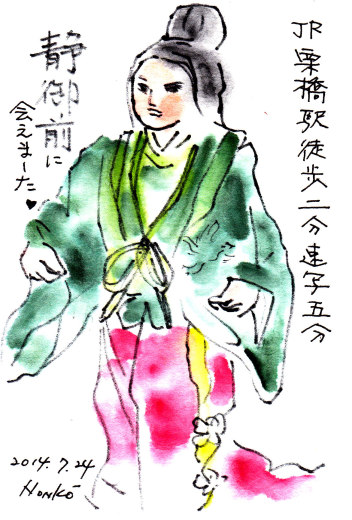 JR栗橋駅徒歩二分速写五分
静御前に
会えました♥
2014.7.24
Honkó